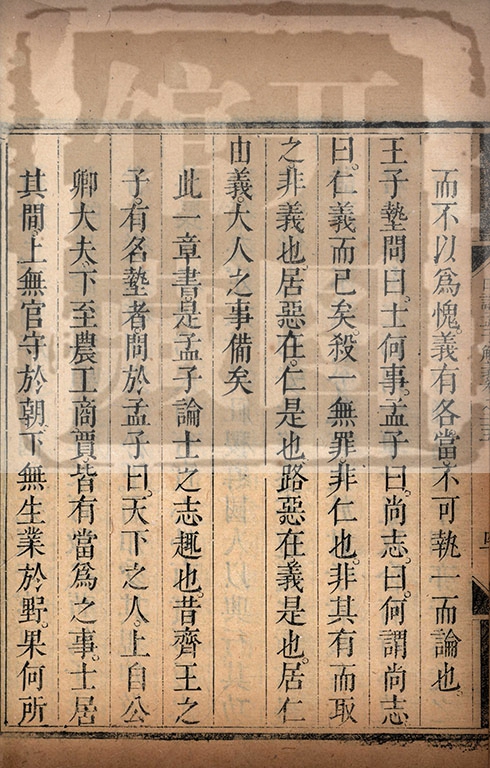 而不以爲愧。義有各當不可執一而論也。
王子墊問曰。士何事。孟子曰。尚志。曰。何謂尚志
曰。仁義而已矣。殺一無罪。非仁也。非其有而取
之。非義也。居惡在。仁是也。路惡在。義是也。居仁
由義。大人之事備矣
此一章書。是孟子論士之志趣也。昔齊王之
子。有名墊者。問於孟子曰。天下之人。上自公
卿大夫。下至農工商賈。皆有當爲之事。士居
其間。上無官守於朝。下無生業於野。果何所